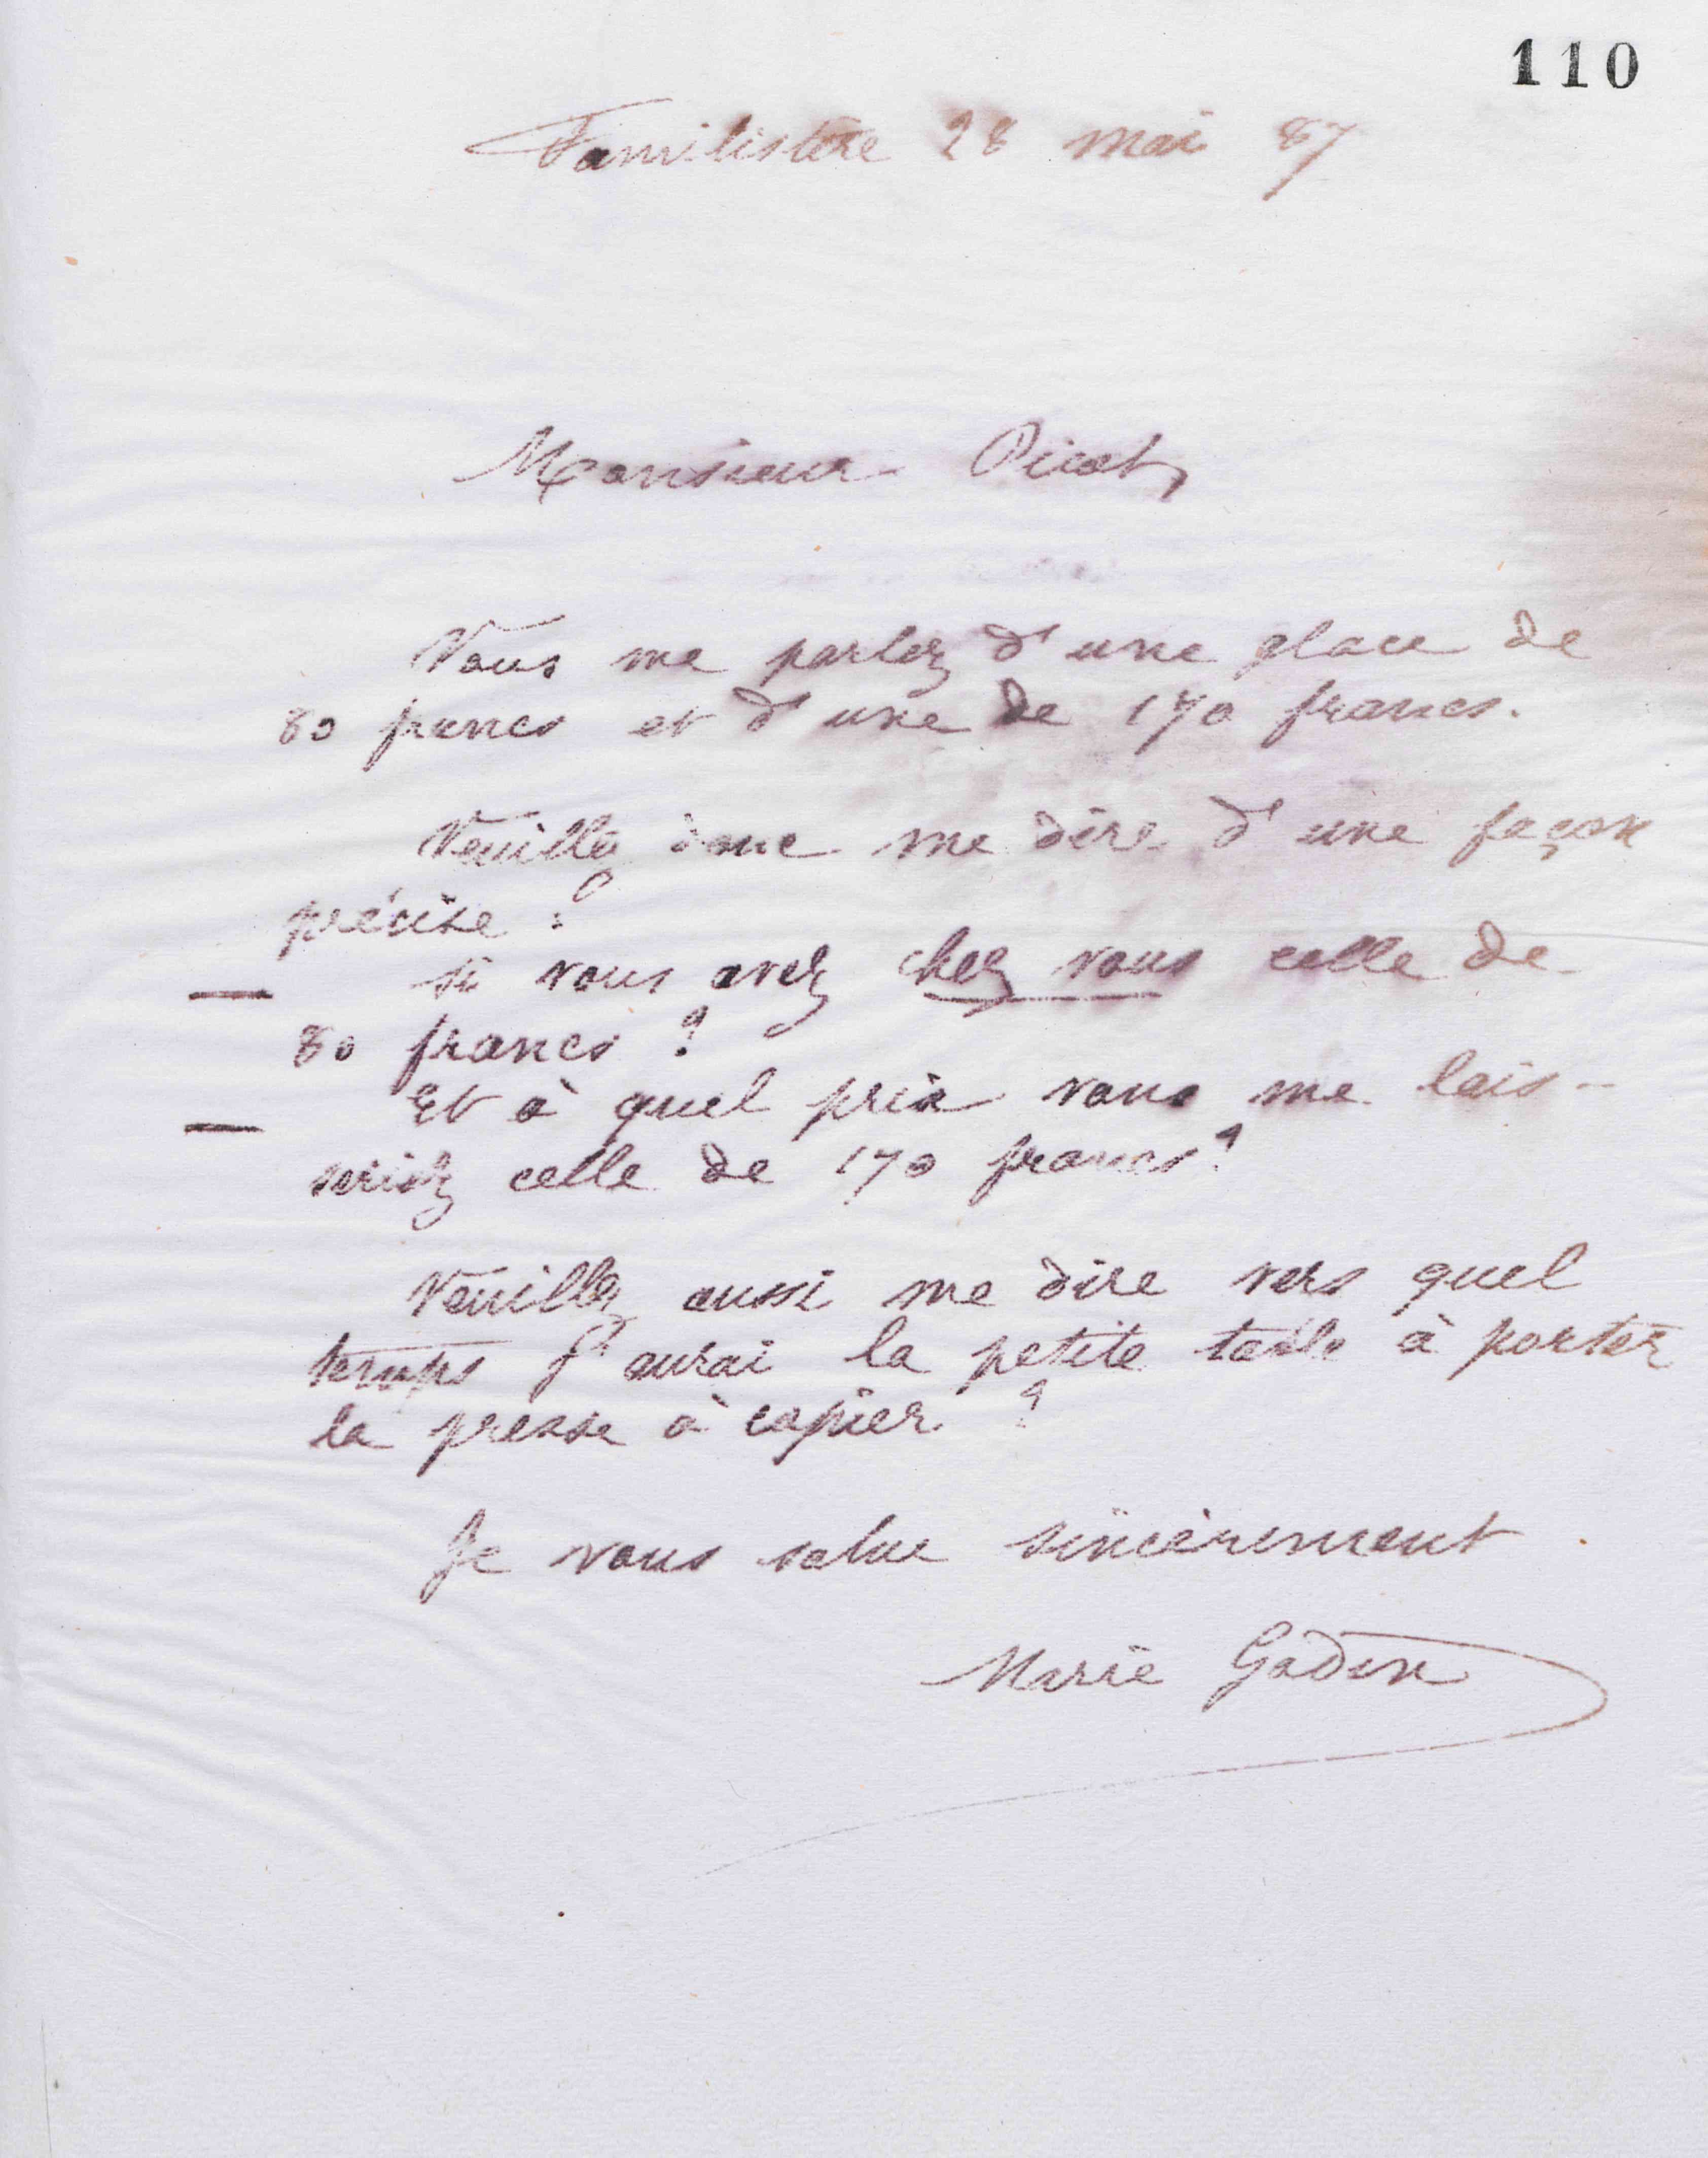 110
Familistère 28 mai 87
Monsieur Picot,
Vous me parlez d'une glace de
80 francs et d'une de 170 francs.
Veuillez donc me dire d'une façon
précise :
— si vous avez chez vous celle de
80 francs ?
— Et à quel prix vous me lais-
seriez celle de 170 francs ?
Veuillez aussi me dire vers quel
temps j'aurai la petite table à porter
la presse à copier ?
Je vous salue sincèrement
Marie Godin